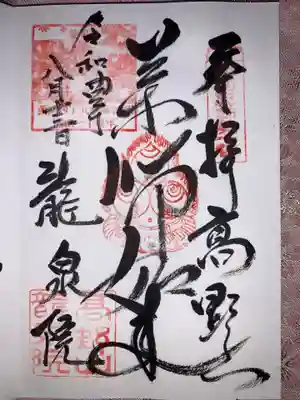 奉拝 高野山
薬師如来
龍泉院
令和四年
八月十二日